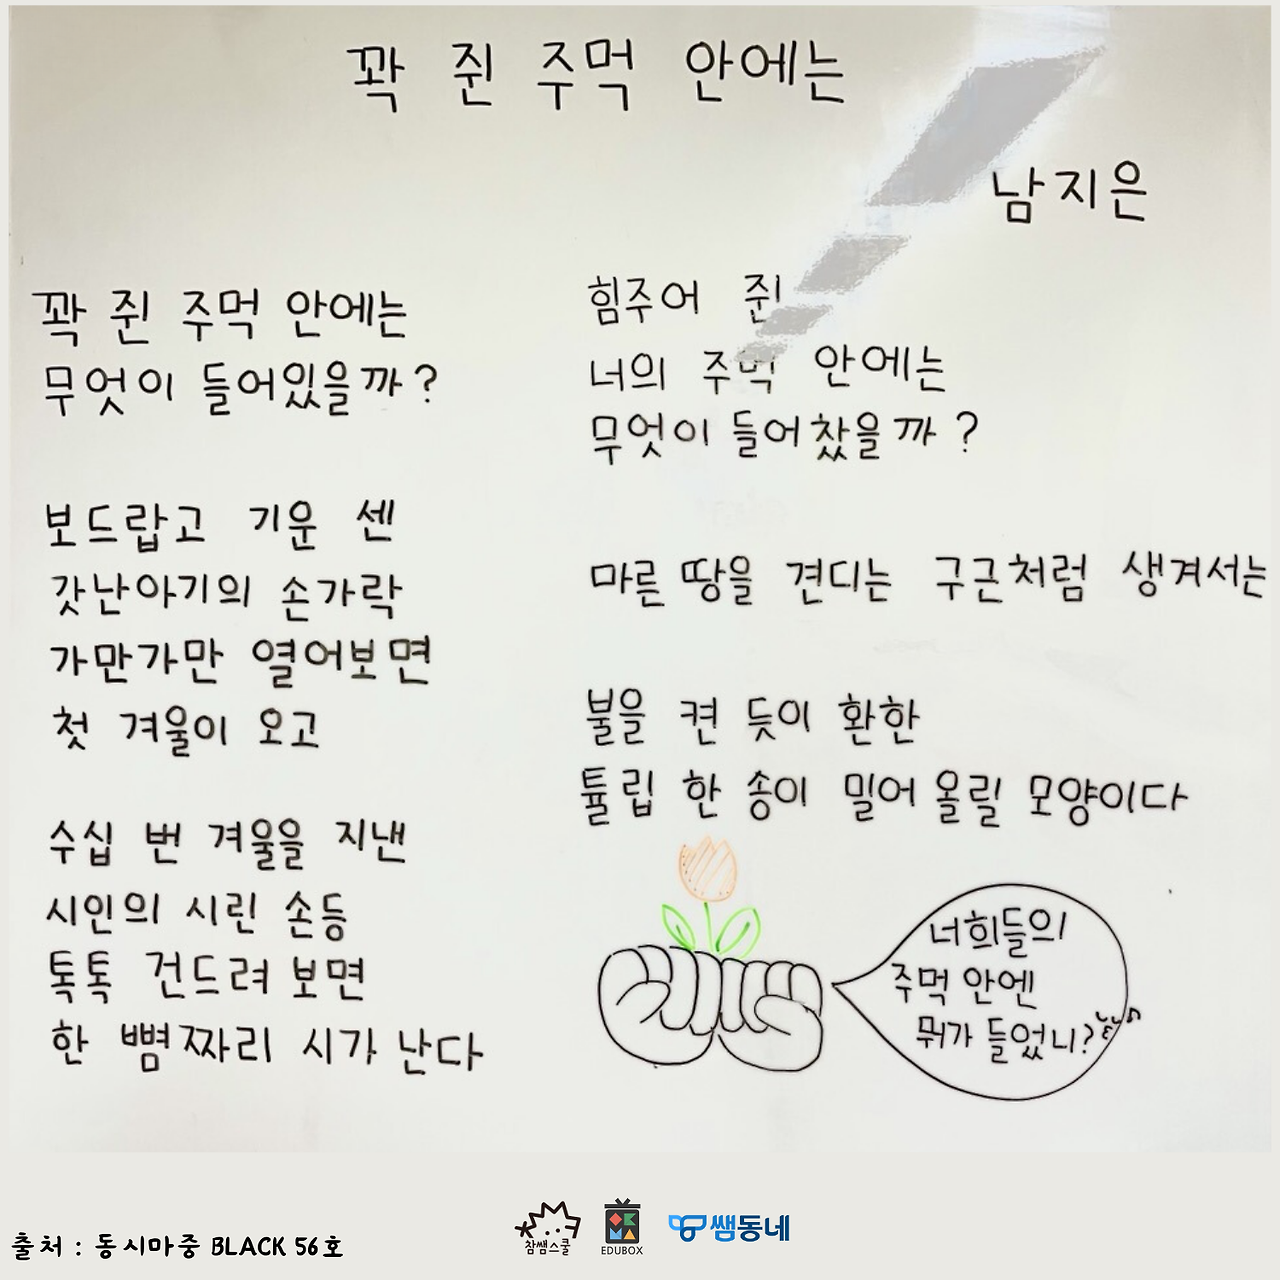 꽉 쥔 주먹 안에는
남지은
꽉 쥔 주먹 안에는
무엇이 들어있을까?
보드랍고 기운 센
갓난아기의 손가락
가만가만 열어보면
첫 겨울이 오고
수십 번 겨울을 지낸
시인의 시린 손등
톡톡 건드려 보면
한 뼘짜리 시가 난다
힘주어 쥔
너의 주먹 안에는
무엇이 들어찼을까?
마른 땅을 견디는 구근처럼 생겨서는
불을 켠 듯이 환한
튤립 한 송이 밀어 올릴 모양이다
너희들의
주먹 안엔
뭐가 들었니?
출처 : 동시마중 BLACK 56호
참쌤스쿨
EDUBOX
쌤동네